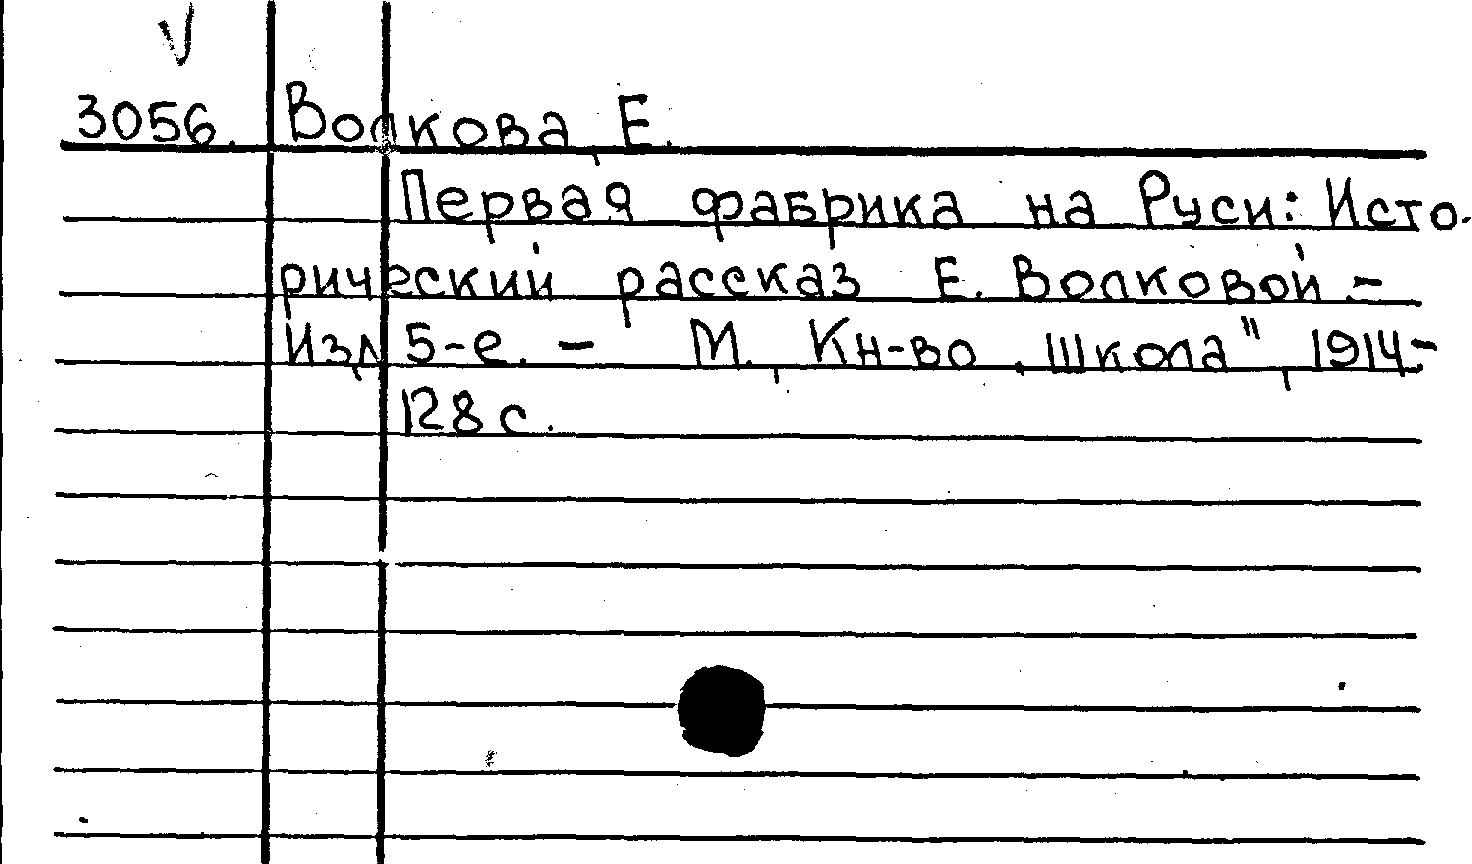 V
3056. Волкова, Е.
Первая фабрика на Руси: Исто-
рический рассказ Е. Волковой. –
Изд. 5-е. – М., Кн-во „Школа", 1914 –
128 с.